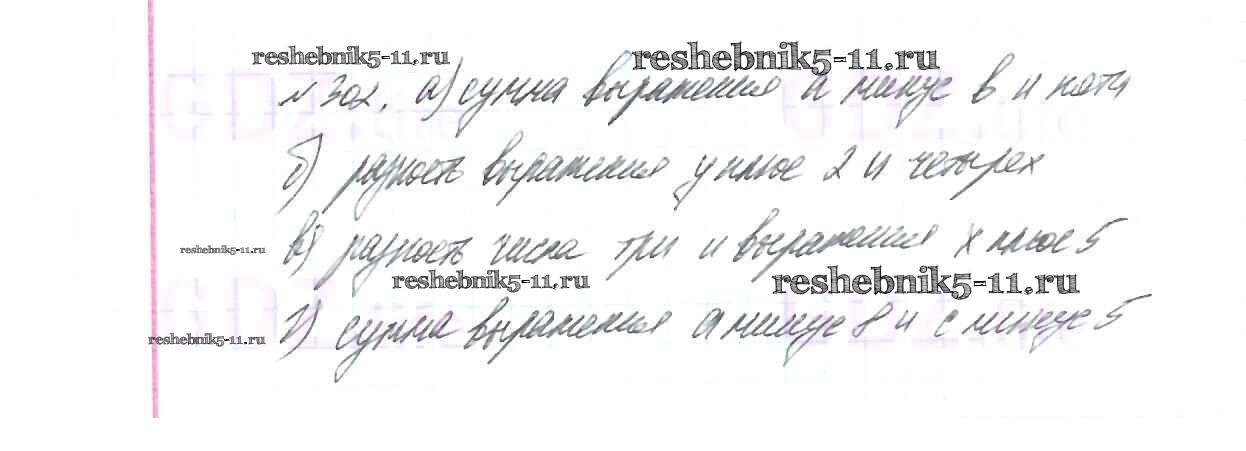 reshebnik5-11.ru reshebnik5-11.ru
№ 302. а) сумма выражения а минус в и пяти
б) разность выражения у плюс 2 и четырех
reshebnik5-11.ru в) разность числа три и выражения х плюс 5
reshebnik5-11.ru reshebnik5-11.ru
reshebnik5-11.ru г) сумма выражения а минус 8 и с минус 5